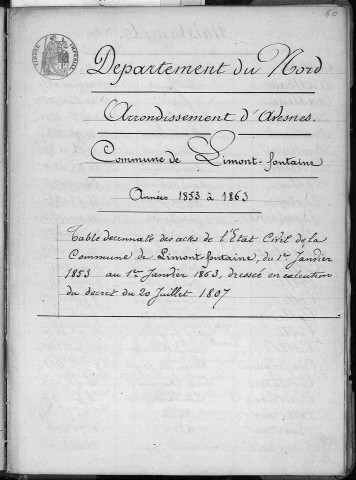 60
TIMBRE IMPERIAL
Département du Nord
Arrondissement d'Avesnes.
Commune de Limont-fontaine
Années 1853 à 1863
Table decennale des actes de l'Etat Civil de la
Commune de Limont-fontaine, du 1er Janvier
1853 au 1er Janvier 1863, dressée en exécution
du decret du 20 Juillet 1807